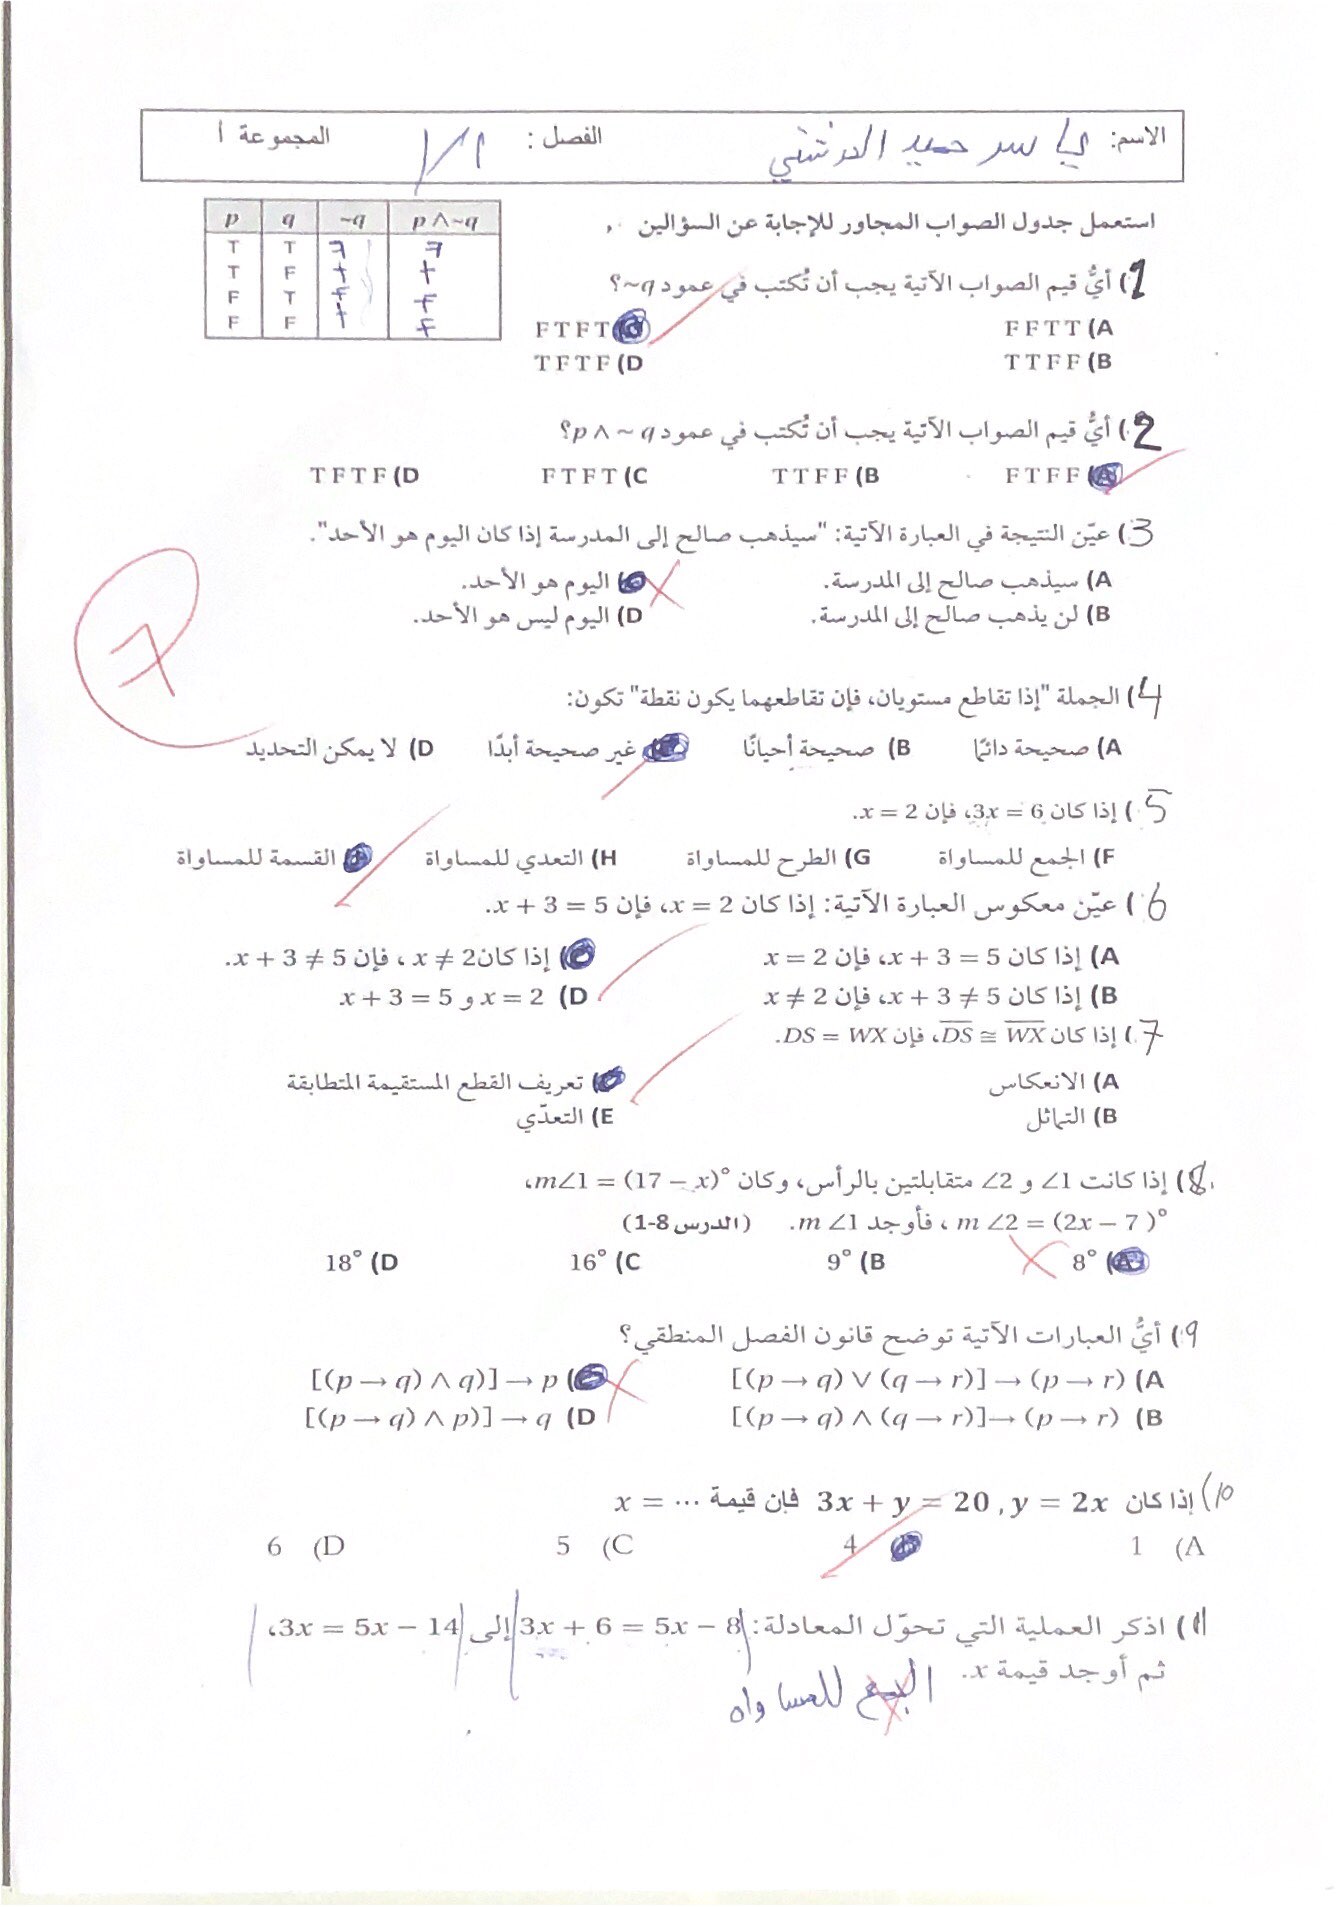 الاسم: ياسر حميد الفصل : ١/٢ المجموعة أ
استعمل جدول الصواب المجاور للإجابة عن السؤالين
p q ~q p ∧ ~q
T T F F
T F T T
F T F F
F F T F
1) أيُّ قيم الصواب الآتية يجب أن تُكتب في عمود q~؟
A) F F T T C) F T F T
B) T T F F D) T F T F
2) أيُّ قيم الصواب الآتية يجب أن تُكتب في عمود p ∧ ~ q؟
A) F T F F B) T T F F C) F T F T D) T F T F
3) عيّن النتيجة في العبارة الآتية: "سيذهب صالح إلى المدرسة إذا كان اليوم هو الأحد".
A) سيذهب صالح إلى المدرسة. اليوم هو الأحد.
B) لن يذهب صالح إلى المدرسة. D) اليوم ليس هو الأحد.
7
4) الجملة "إذا تقاطع مستويان، فإن تقاطعهما يكون نقطة" تكون:
A) صحيحة دائمًا B) صحيحة أحيانًا غير صحيحة أبدًا D) لا يمكن التحديد
5) إذا كان 3x = 6، فإن x = 2.
F) الجمع للمساواة G) الطرح للمساواة H) التعدي للمساواة القسمة للمساواة
6) عيّن معكوس العبارة الآتية: إذا كان x = 2، فإن x + 3 = 5.
A) إذا كان x + 3 = 5، فإن x = 2 إذا كان x ≠ 2 ، فإن x + 3 ≠ 5.
B) إذا كان x + 3 ≠ 5، فإن x ≠ 2 D) x = 2 و x + 3 = 5
7) إذا كان DS ≅ WX، فإن DS = WX.
A) الانعكاس تعريف القطع المستقيمة المتطابقة
B) التماثل E) التعدّي
8) إذا كانت ∠1 و ∠2 متقابلتين بالرأس، وكان m∠1 = (17 − x)°،
m ∠2 = (2x − 7 )° ، فأوجد m ∠1. (الدرس 8-1)
A) 8° B) 9° C) 16° D) 18°
9) أيُّ العبارات الآتية توضح قانون الفصل المنطقي؟
A) [(p → q) ∨ (q → r)] → (p → r) [(p → q) ∧ q)] → p
B) [(p → q) ∧ (q → r)] → (p → r) D) [(p → q) ∧ p)] → q
10) إذا كان 3x + y = 20 , y = 2x فإن قيمة ... = x
A) 1 4 C) 5 D) 6
11) اذكر العملية التي تحوّل المعادلة: 3x + 6 = 5x − 8 إلى 3x = 5x − 14،
ثم أوجد قيمة x.
للمساواه